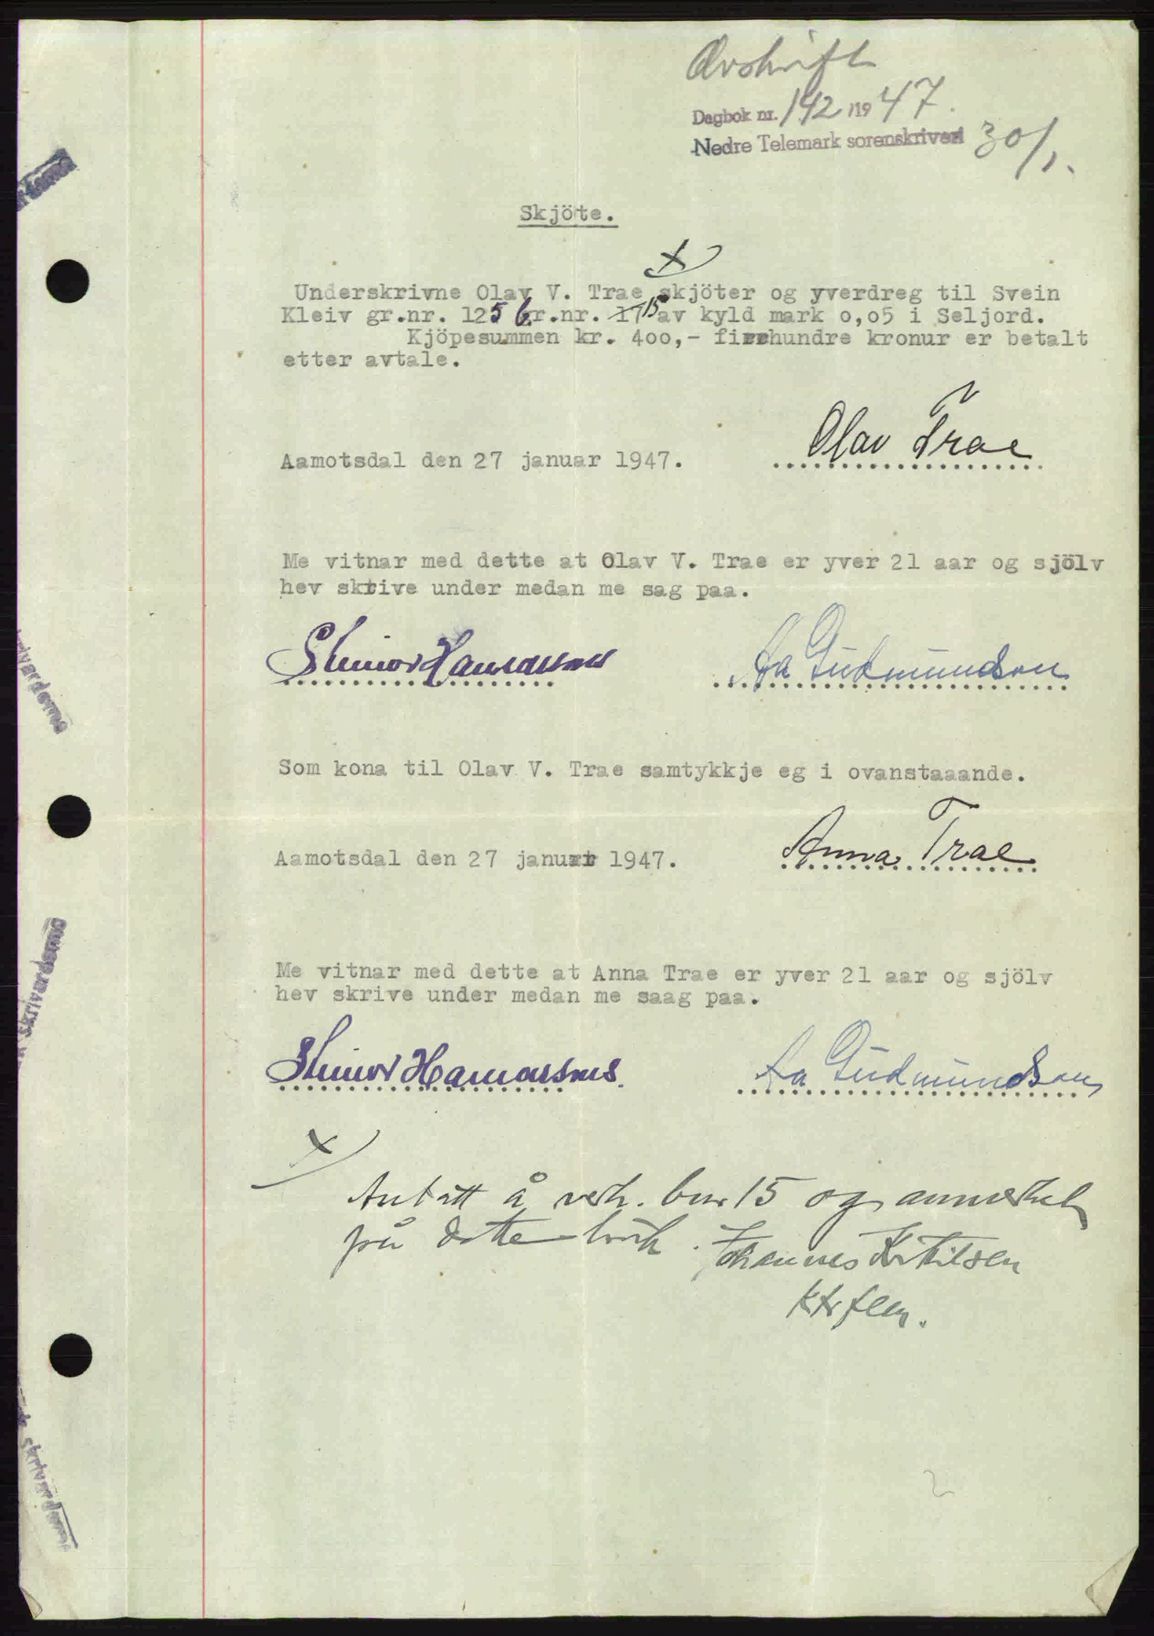 Avskrift
Dagbok nr. 142 1947.
Nedre Telemark sorenskriveri 30/1.
Skjöte.
x)
Underskrivne Olav V. Trae skjöter og yverdreg til Svein
Kleiv gr.nr. 125 br.nr. 15 av kyld mark 0,05 i Seljord.
Kjöpesummen kr. 400,- firehundre kronur er betalt
etter avtale.
Aamotsdal den 27 januar 1947.
Olav Trae
Me vitnar med dette at Olav V. Trae er yver 21 aar og sjölv
hev skrive under medan me sag paa.
Aa Gudmundson
Som kona til Olav V. Trae samtykkje eg i ovanstaaande.
Aamotsdal den 27 januar 1947.
Anna Trae
Me vitnar med dette at Anna Trae er yver 21 aar og sjölv
hev skrive under medan me saag paa.
Aa Gudmundson
x)
å verk. bnr 15 og anmerket
på dette bruk. Johannes Kittilsen
2
skrivardømme